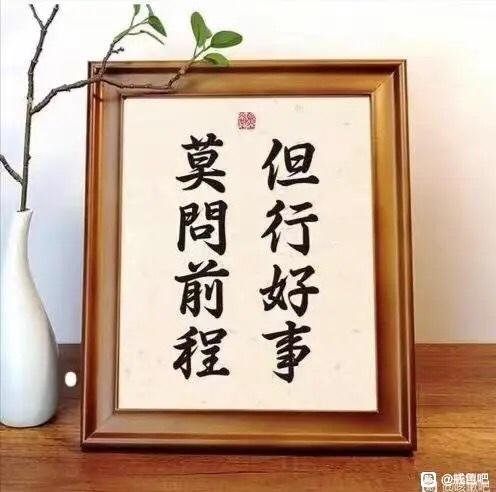 但行好事
莫問前程
@戒鲁吧